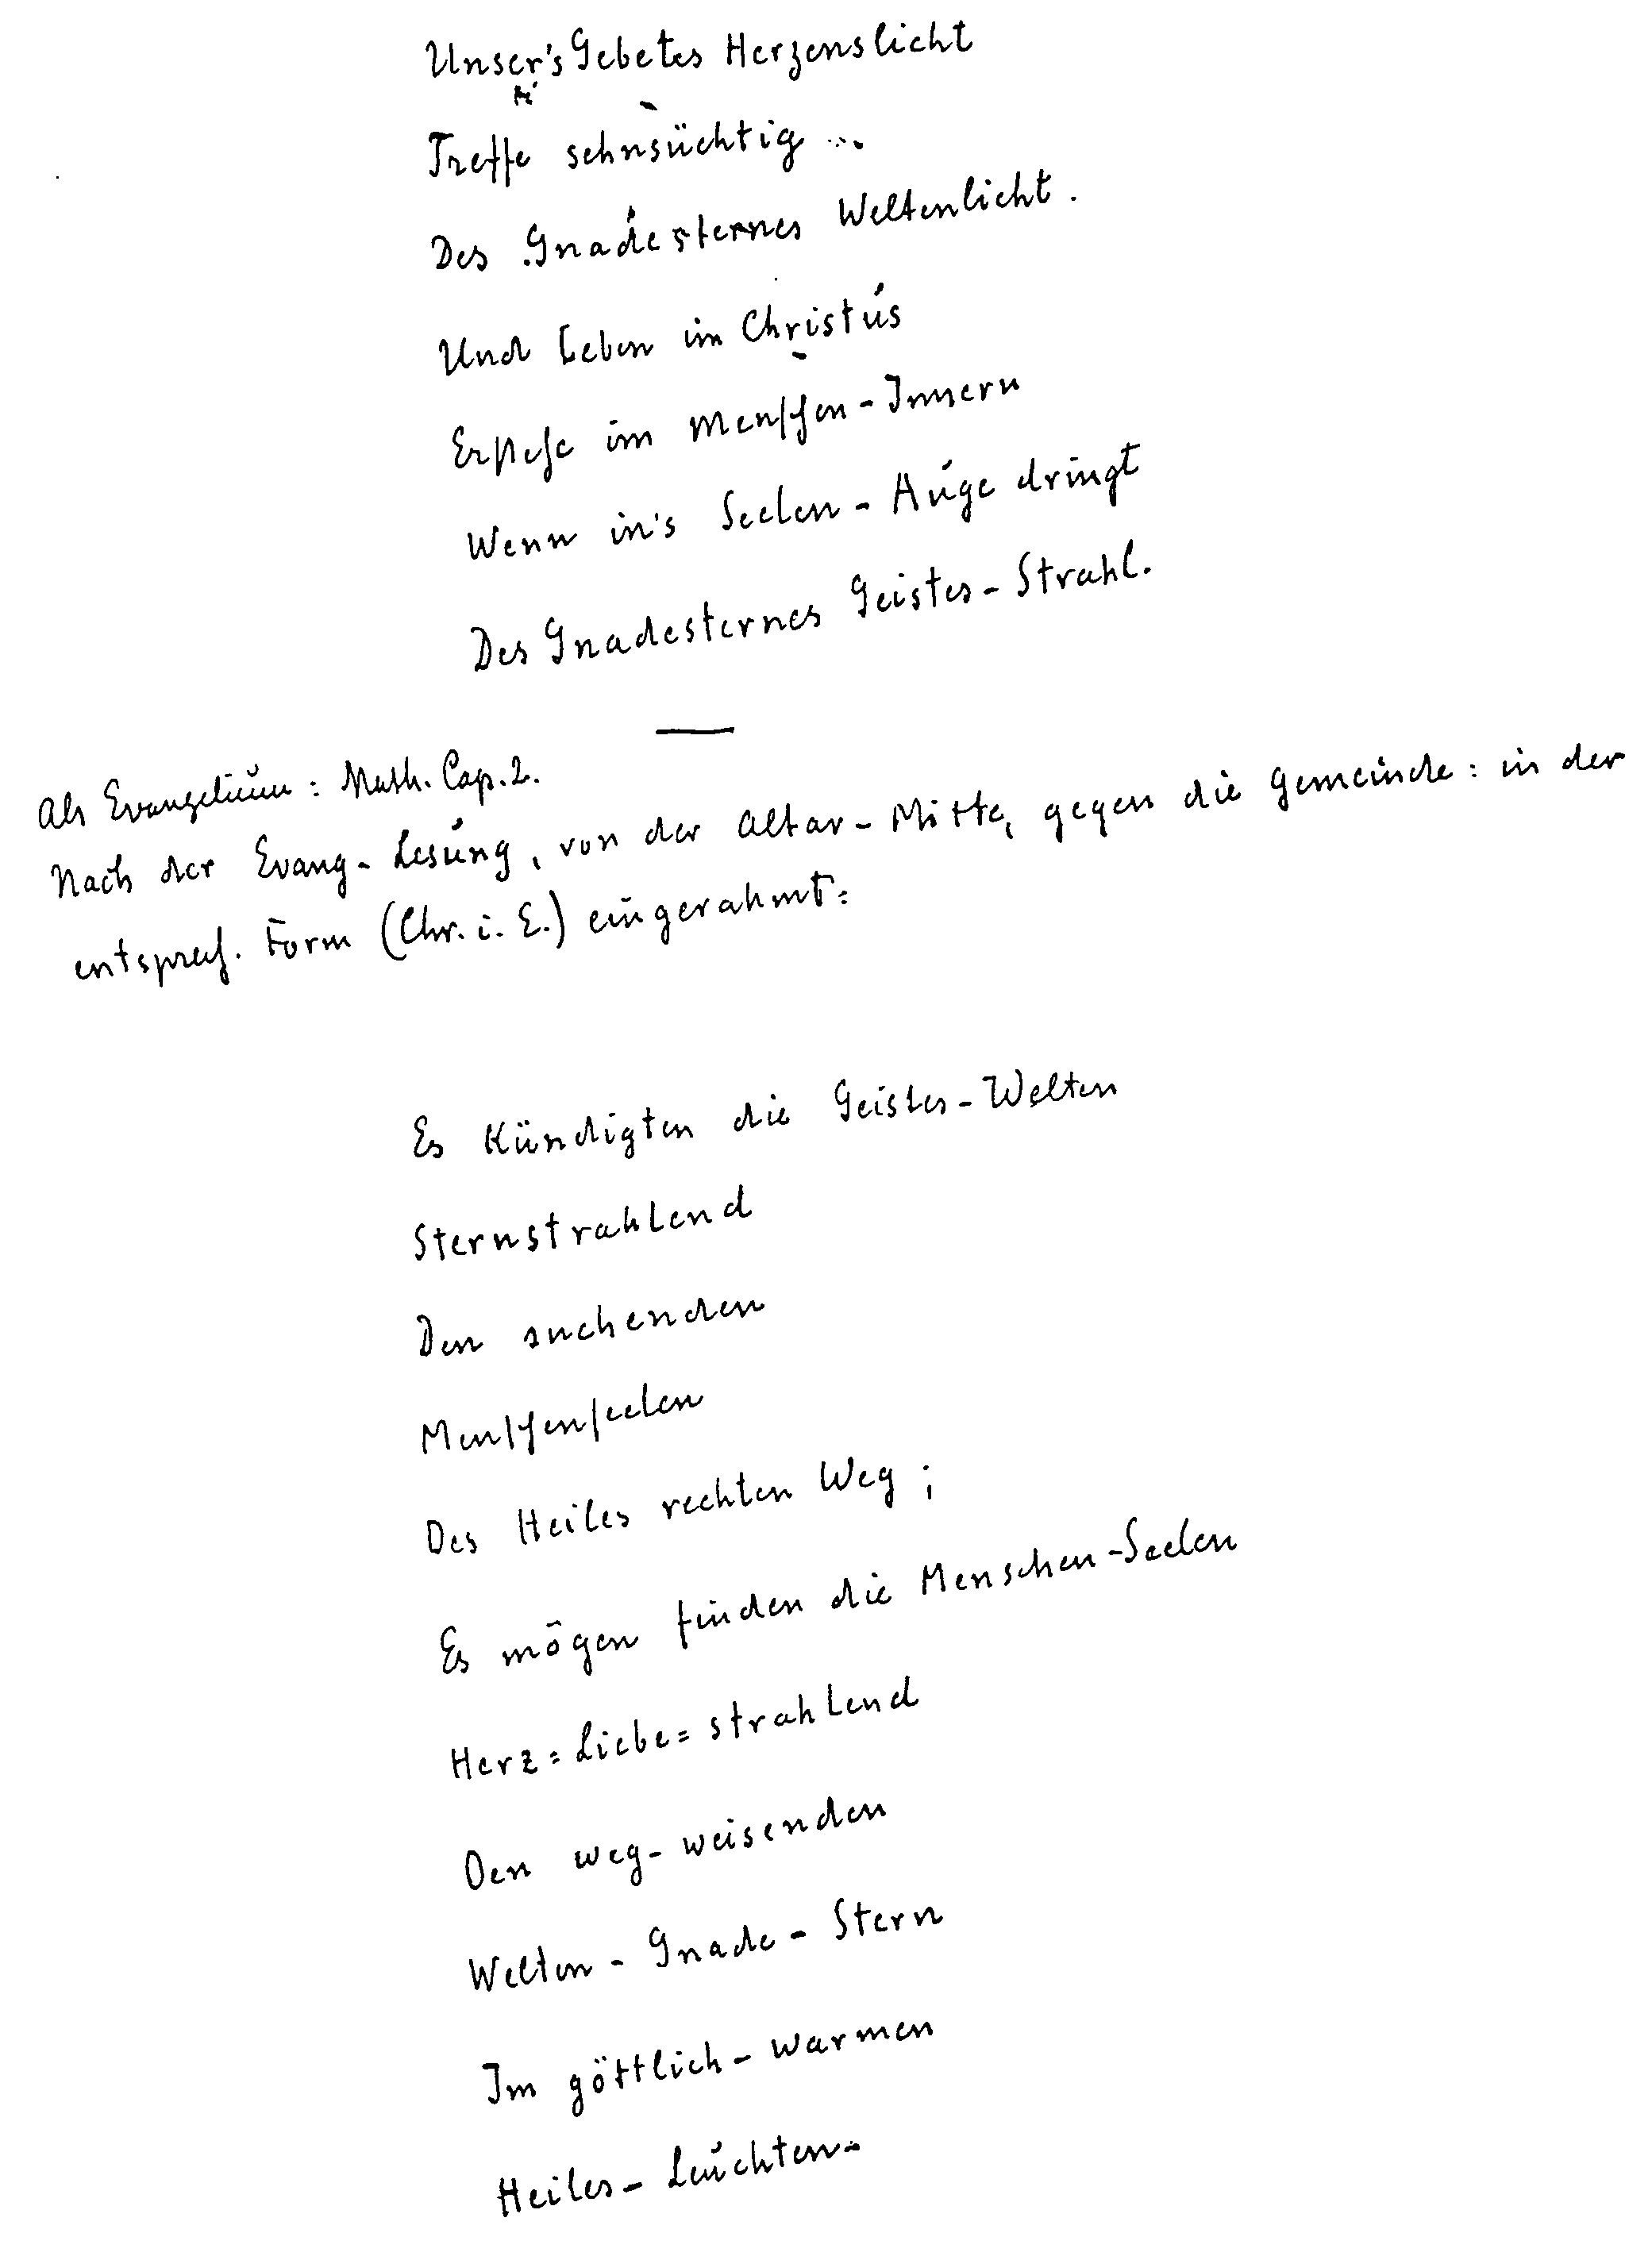 Unser's Gebetes Herzenslicht
Treffe sehnsüchtig ...
Des Gnadesternes Weltenlicht.
Und Leben im Christus
Erstehe im Menschen-Innern
Wenn in's Seelen-Auge dringt
Des Gnadesternes Geistes-Strahl.
Als Evangelium: Math. Cap. 2.
Nach der Evang-Lesung, von der Altar-Mitte, gegen die Gemeinde: in der
entsprech. Form (Chr. i. E.) eingerahmt:
Es kündigten die Geistes-Welten
Sternstrahlend
Den suchenden
Menschenseelen
Des Heiles rechten Weg;
Es mögen finden die Menschen-Seelen
Herz=Liebe=strahlend
Den weg-weisenden
Welten-Gnade-Stern
Im göttlich-warmen
Heiles-Leuchten.